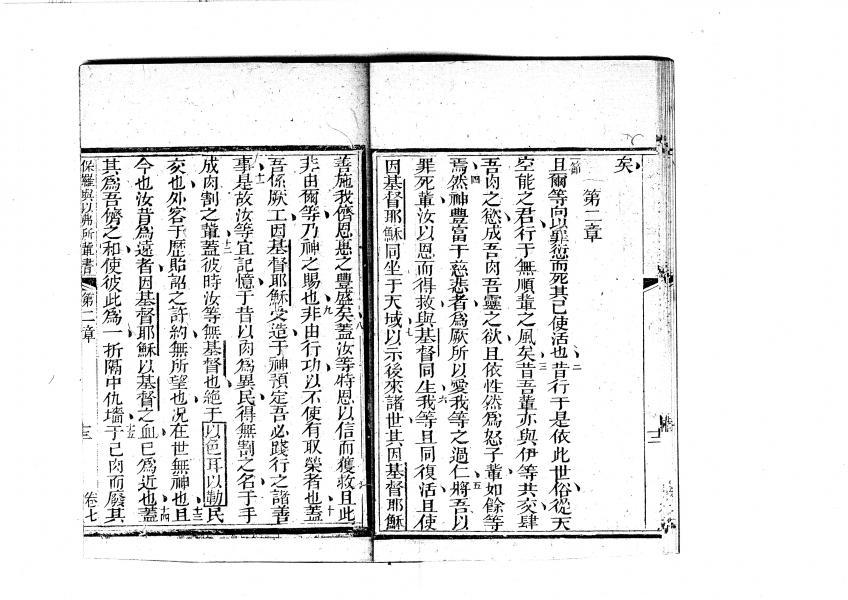 矣
第二章
節且爾等向以罪愆而死其已使活也二昔行于是依此世俗從天
空能之君行于無順輩之風矣三昔吾輩亦與伊等共交肆
吾肉之慾成吾肉吾靈之欲且依性然爲怒子輩如餘等
四焉然神豐富于慈悲者爲厥所以愛我等之過仁五將吾以
罪死輩汝以恩而得救與基督同生我等六且同復活且使
因基督耶穌同坐于天域七以示後來諸世其因基督耶穌
善施我儕恩惠之豐盛矣八蓋汝等特恩以信而獲救且此
非由爾等乃神之賜也九非由行功以不使有取榮者也十蓋
吾係厥工因基督耶穌受造于神預定吾必踐行之諸善
事十一是故汝等宜記憶于昔以肉爲異民得無割之名于手
成肉割之輩十二蓋彼時汝等無基督也絶于以色耳以勒民
交也外客于歷貽詔之許約無所望也况在世無神也十三且
今也汝昔爲遠者因基督耶穌以基督之血已爲近也十四蓋
其爲吾儕之和使彼此爲一折隔中仇墻十五于己肉而廢其
保羅與以弗所輩書 第二章 十三 卷七